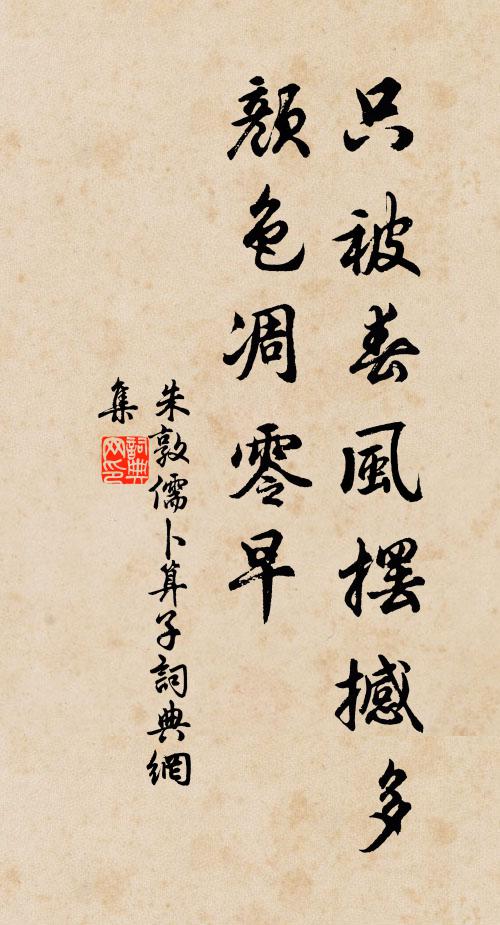 只被春風擺撼多
顏色凋零早
朱敦儒卜算子詞典網
集
詞典網印